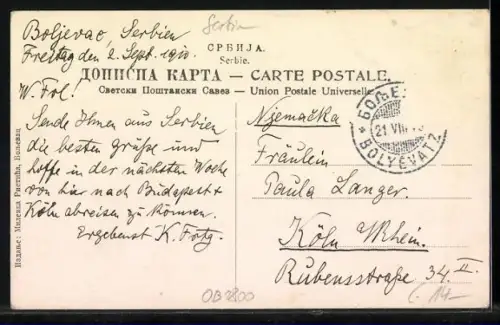 Serbien
Boljevac, Serbien
Freitag den, 2. Sept. 1910.
СРБИЈА.
Serbie.
ДОПИСНА КАРТА — CARTE POSTALE.
Светски Поштански Савез – Union Postale Universelle
W. Frl!
Sende Ihnen aus Serbien
die besten Grüße und
hoffe in der nächsten Woche
von hier nach Budapest +
Köln abreisen zu können.
Ergebenst K.
Nijemačka
Fräulein
Paula Langer.
Köln a/Rhein.
Rubensstraße 34. II.
БОЉЕ
21 VIII
BOLYÉVATZ
Издање:
OB2800
14-